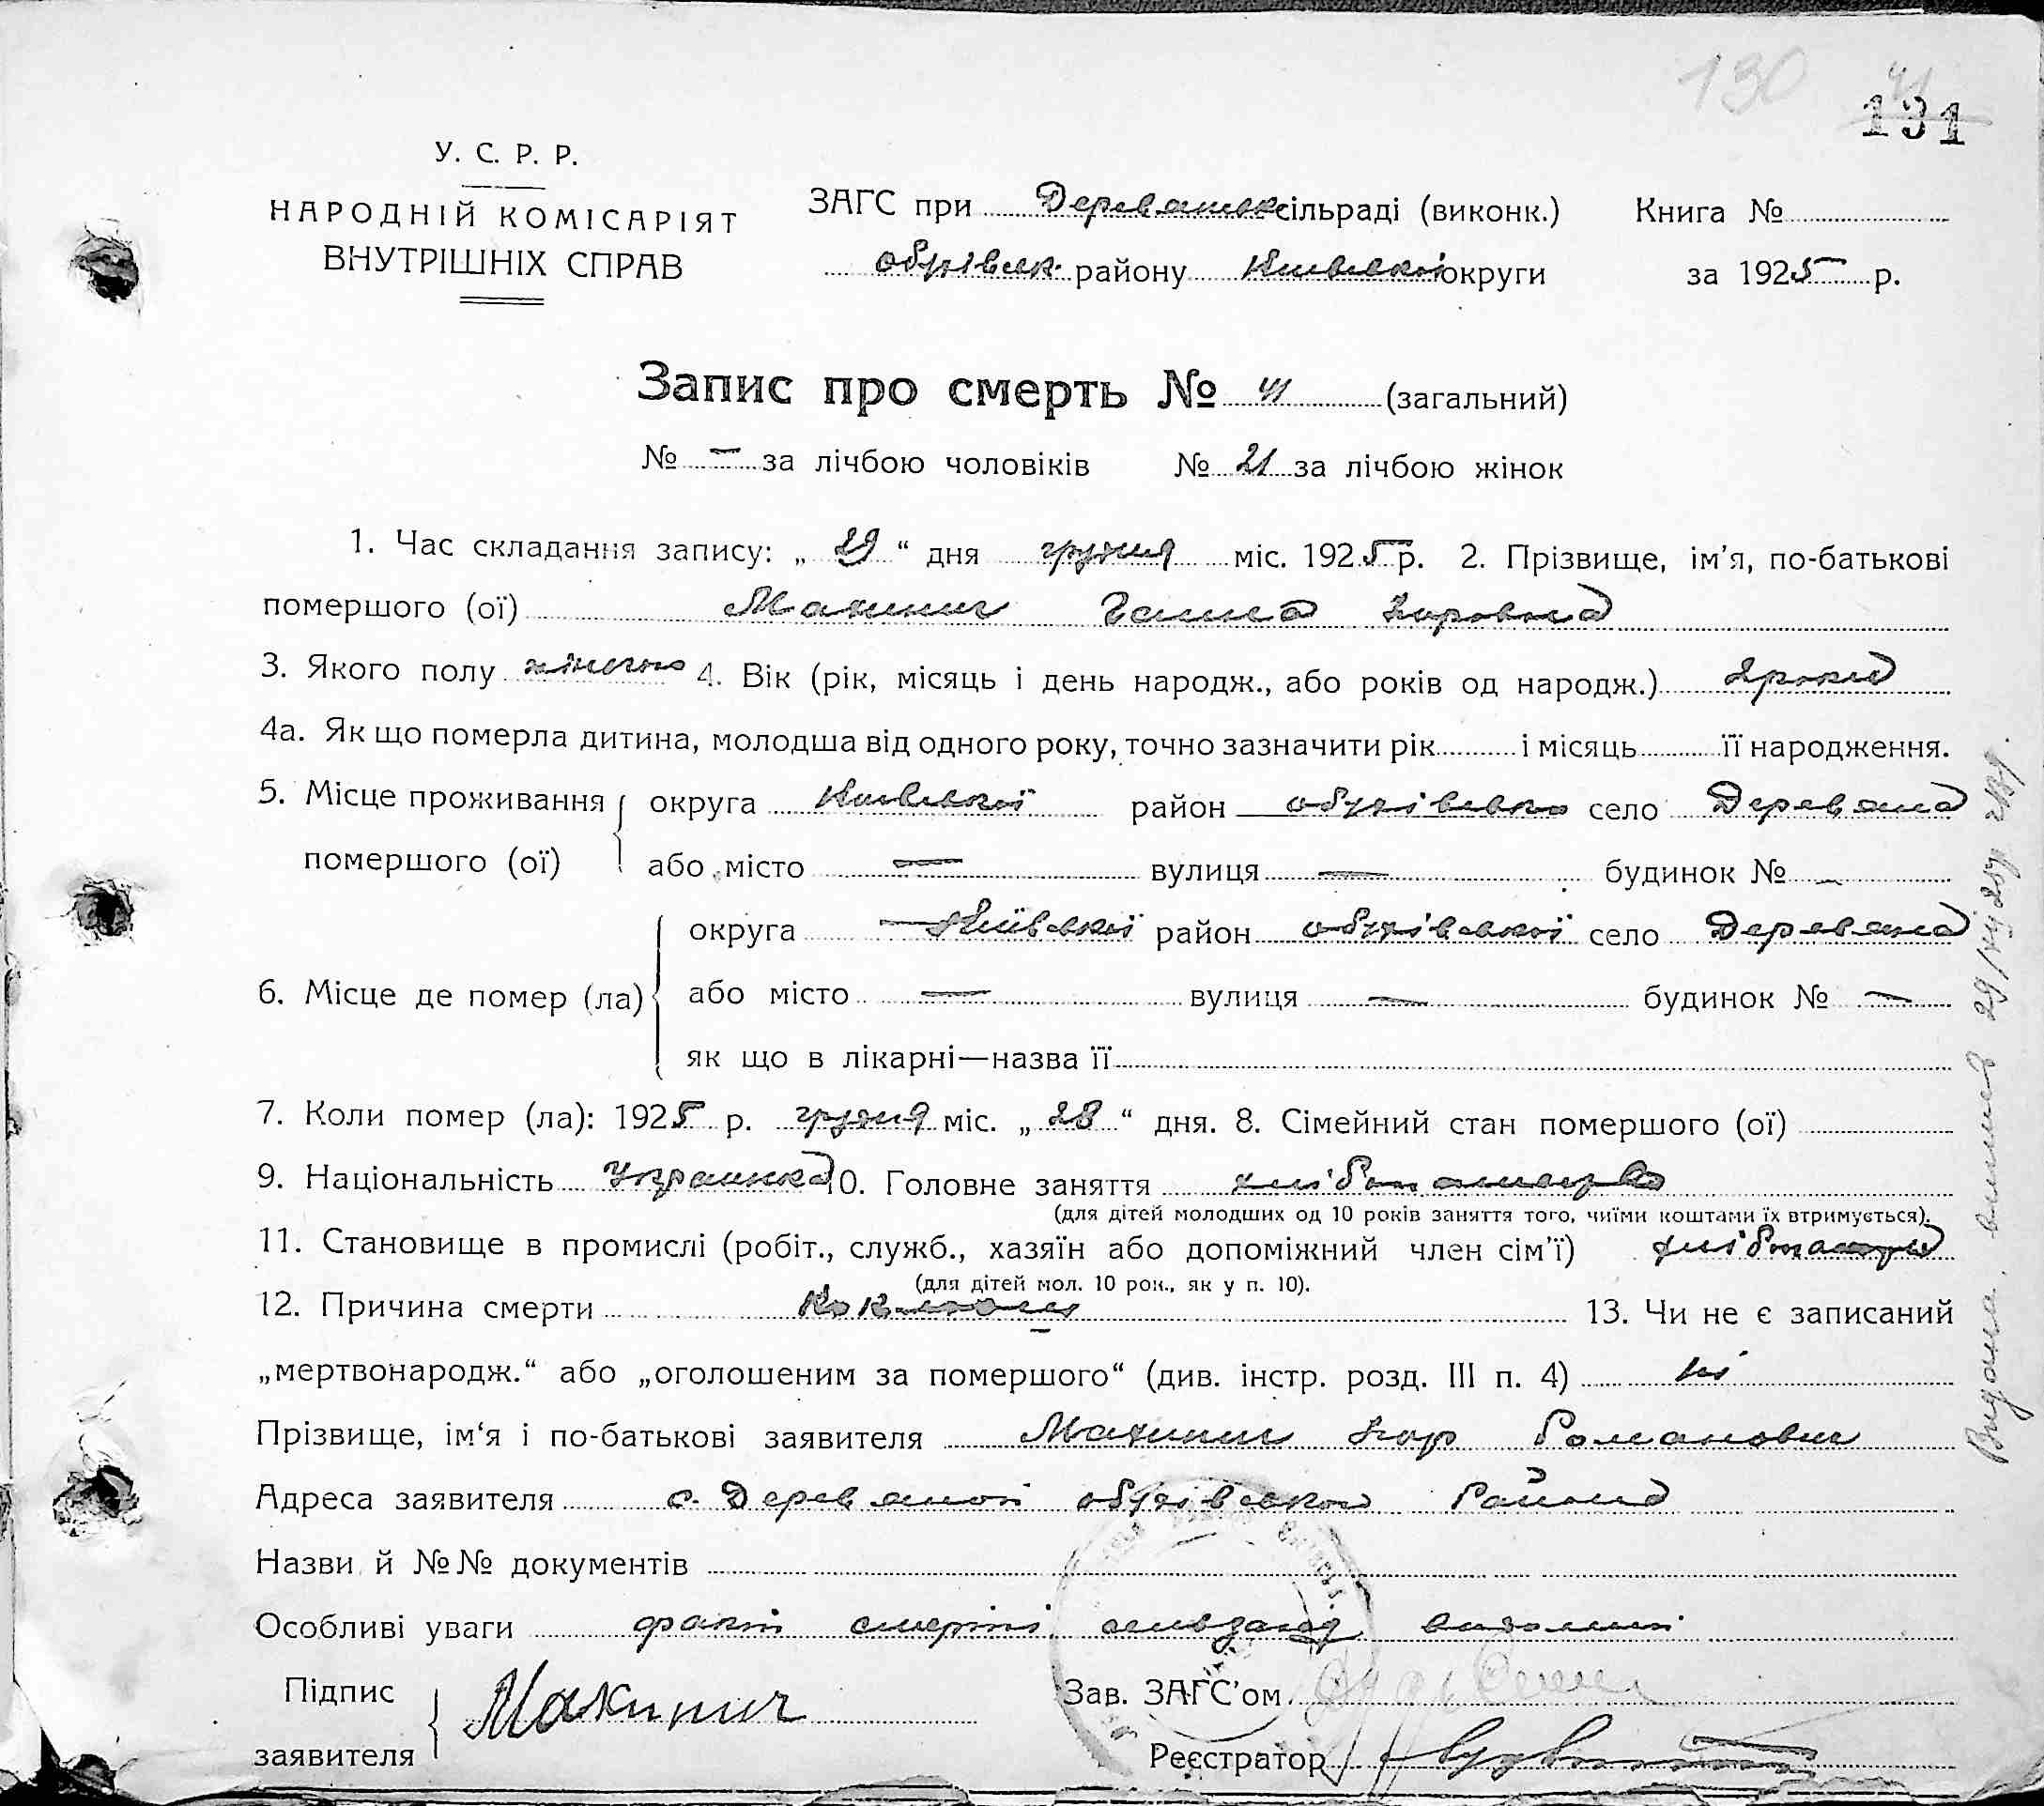 130 41
131
У. С. Р. Р.
НАРОДНІЙ КОМІСАРІЯТ
ВНУТРІШНІХ СПРАВ
ЗАГС при Деревянськ сільраді (виконк.) Книга №
обухівськ району Київської округи за 1925 р.
Запис про смерть № 41 (загальний)
№ — за лічбою чоловіків № 21 за лічбою жінок
1. Час складання запису: „ 29 “ дня грудня міс. 1925 р. 2. Прізвище, ім’я, по-батькові
помершого (ої) Махинич Ганна
3. Якого полу жіночо 4. Вік (рік, місяць і день народж., або років од народж.) 2 роки
4а. Як що померла дитина, молодша від одного року, точно зазначити рік і місяць її народження.
5. Місце проживання округа Київської район обухівсько село Деревяна
помершого (ої) або місто — вулиця — будинок № —
округа Київської район обухівської село Деревяна
6. Місце де помер (ла) або місто — вулиця — будинок № —
як що в лікарні—назва її
7. Коли помер (ла): 1925 р. грудня міс. „ 28 “ дня. 8. Сімейний стан помершого (ої)
9. Національність Украинка 10. Головне заняття хліборобство
(для дітей молодших од 10 років заняття того, чиїми коштами їх втримується).
11. Становище в промислі (робіт., служб., хазяїн або допоміжний член сім’ї)
(для дітей мол. 10 рок., як у п. 10).
12. Причина смерти Коклюш 13. Чи не є записаний
„мертвонародж.“ або „оголошеним за помершого“ (див. інстр. розд. III п. 4) ні
Прізвище, ім‘я і по-батькові заявителя Махинич Романович
Адреса заявителя с. Деревяної обухівського Району
Назви й №№ документів
Особливі уваги факт смерті відомий
Підпис Махинич Зав. ЗАГС’ом
заявителя Реєстратор
Видана 29/XII 25р.